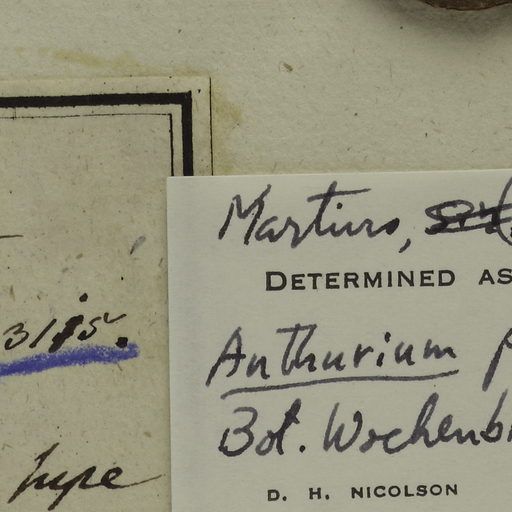 Martius,
DETERMINED AS
Anthurium
Bot. Wochenb
D. H. NICOLSON
type